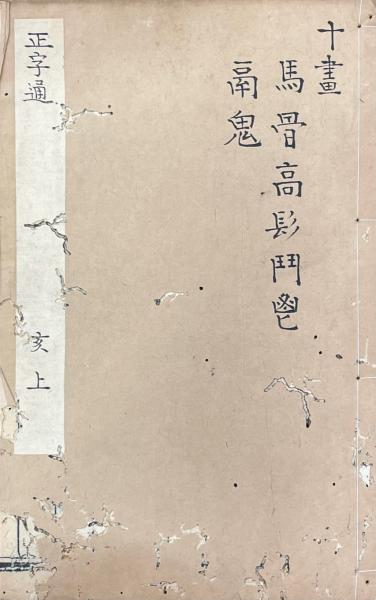 十畫
馬骨高髟鬥鬯
鬲鬼
正字通 亥上